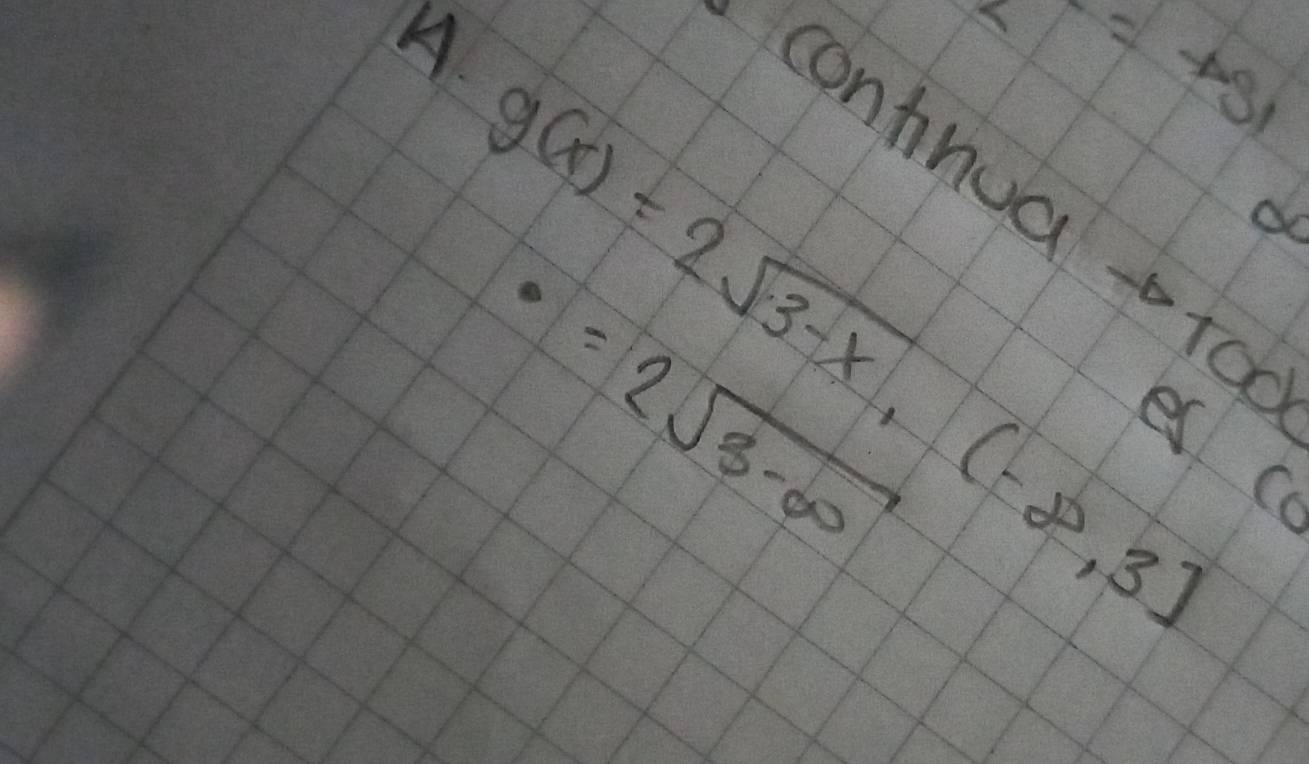 = → Si
∞
continua → Todo
es co
A. g(x) = 2√3-x, (-∞,3]
• = 2√3-∞